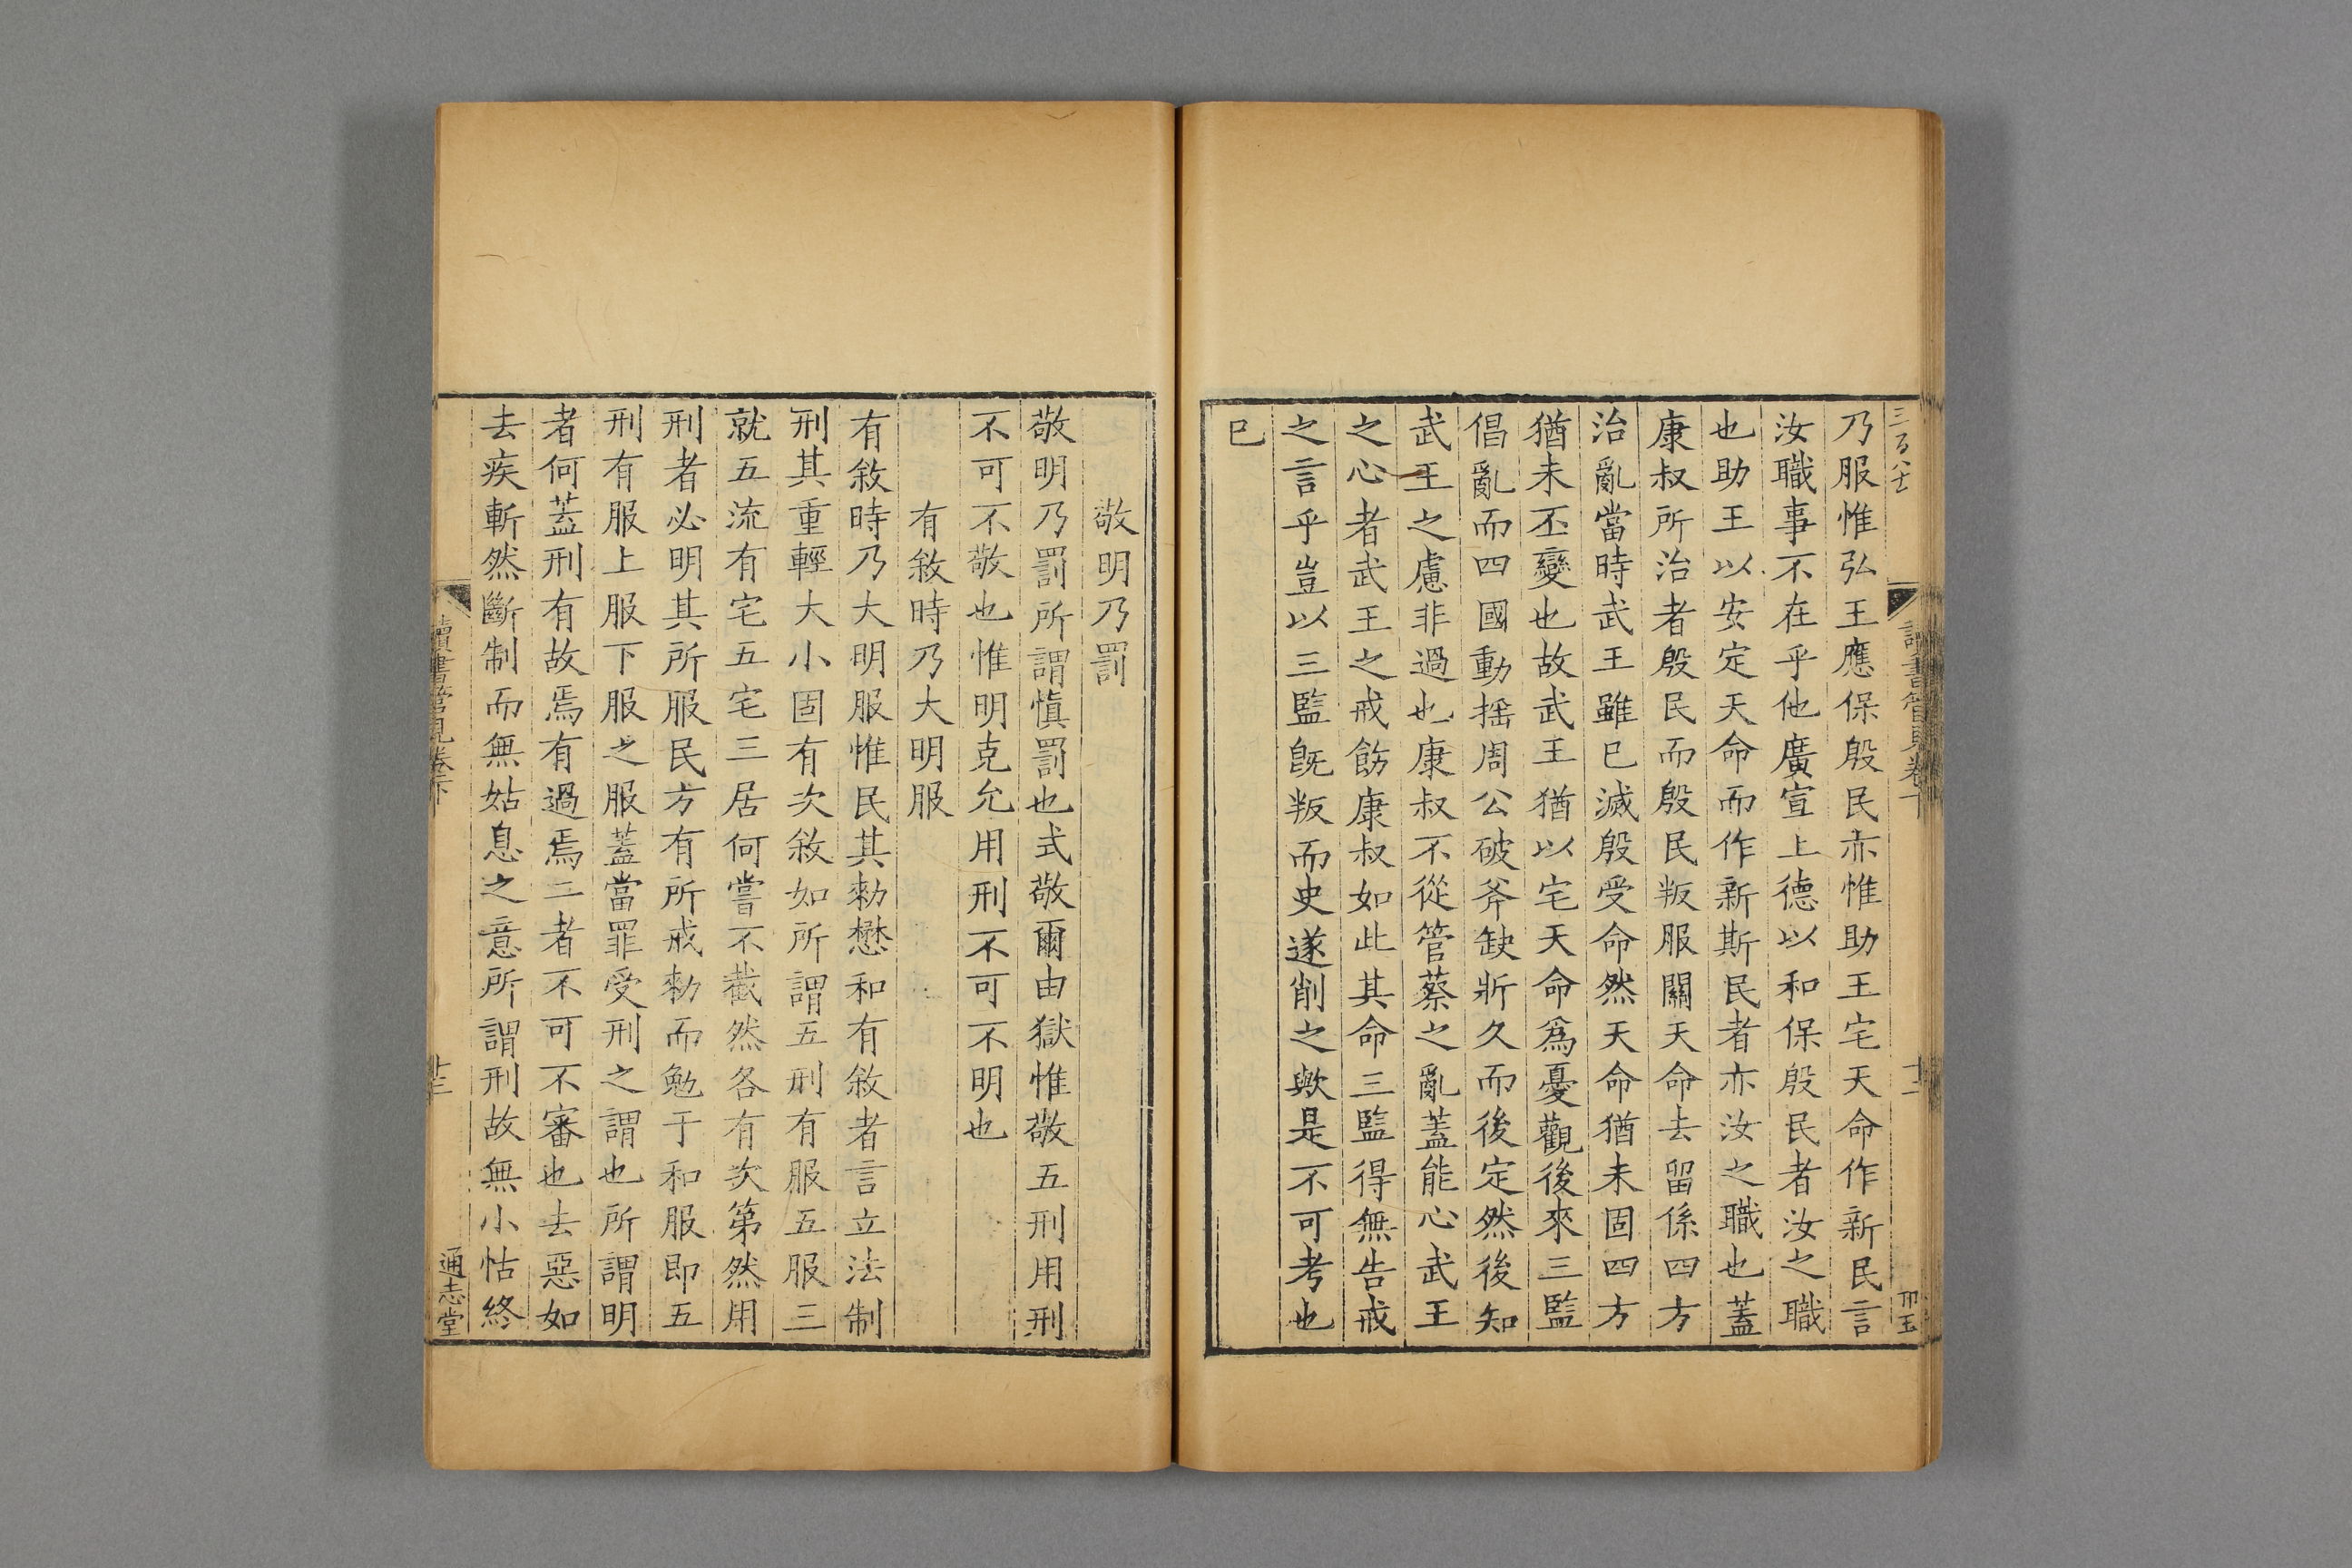 三百八七
讀書管見卷下
十二
乃服惟弘王應保殷民亦惟助王宅天命作新民言
汝職事不在乎他廣宣上德以和保殷民者汝之職
也助王以安定天命而作新斯民者亦汝之職也蓋
康叔所治者殷民而殷民叛服關天命去留係四方
治亂當時武王雖已滅殷受命然天命猶未固四方
猶未丕變也故武王猶以宅天命爲憂觀後來三監
倡亂而四國動揺周公破斧缺斨久而後定然後知
武王之慮非過也康叔不從管蔡之亂蓋能心武王
之心者武王之戒飭康叔如此其命三監得無告戒
之言乎豈以三監旣叛而史遂削之歟是不可考也
已
敬明乃罰
敬明乃罰所謂愼罰也式敬爾由獄惟敬五刑用刑
不可不敬也惟明克允用刑不可不明也
有敘時乃大明服
有敘時乃大明服惟民其勑懋和有敘者言立法制
刑其重輕大小固有次敘如所謂五刑有服五服三
就五流有宅五宅三居何嘗不截然各有次第然用
刑者必明其所服民方有所戒勑而勉于和服即五
刑有服上服下服之服蓋當罪受刑之謂也所謂明
者何蓋刑有故焉有過焉二者不可不審也去惡如
去疾斬然斷制而無姑息之意所謂刑故無小怙終
讀書管見卷下
十三
通志堂